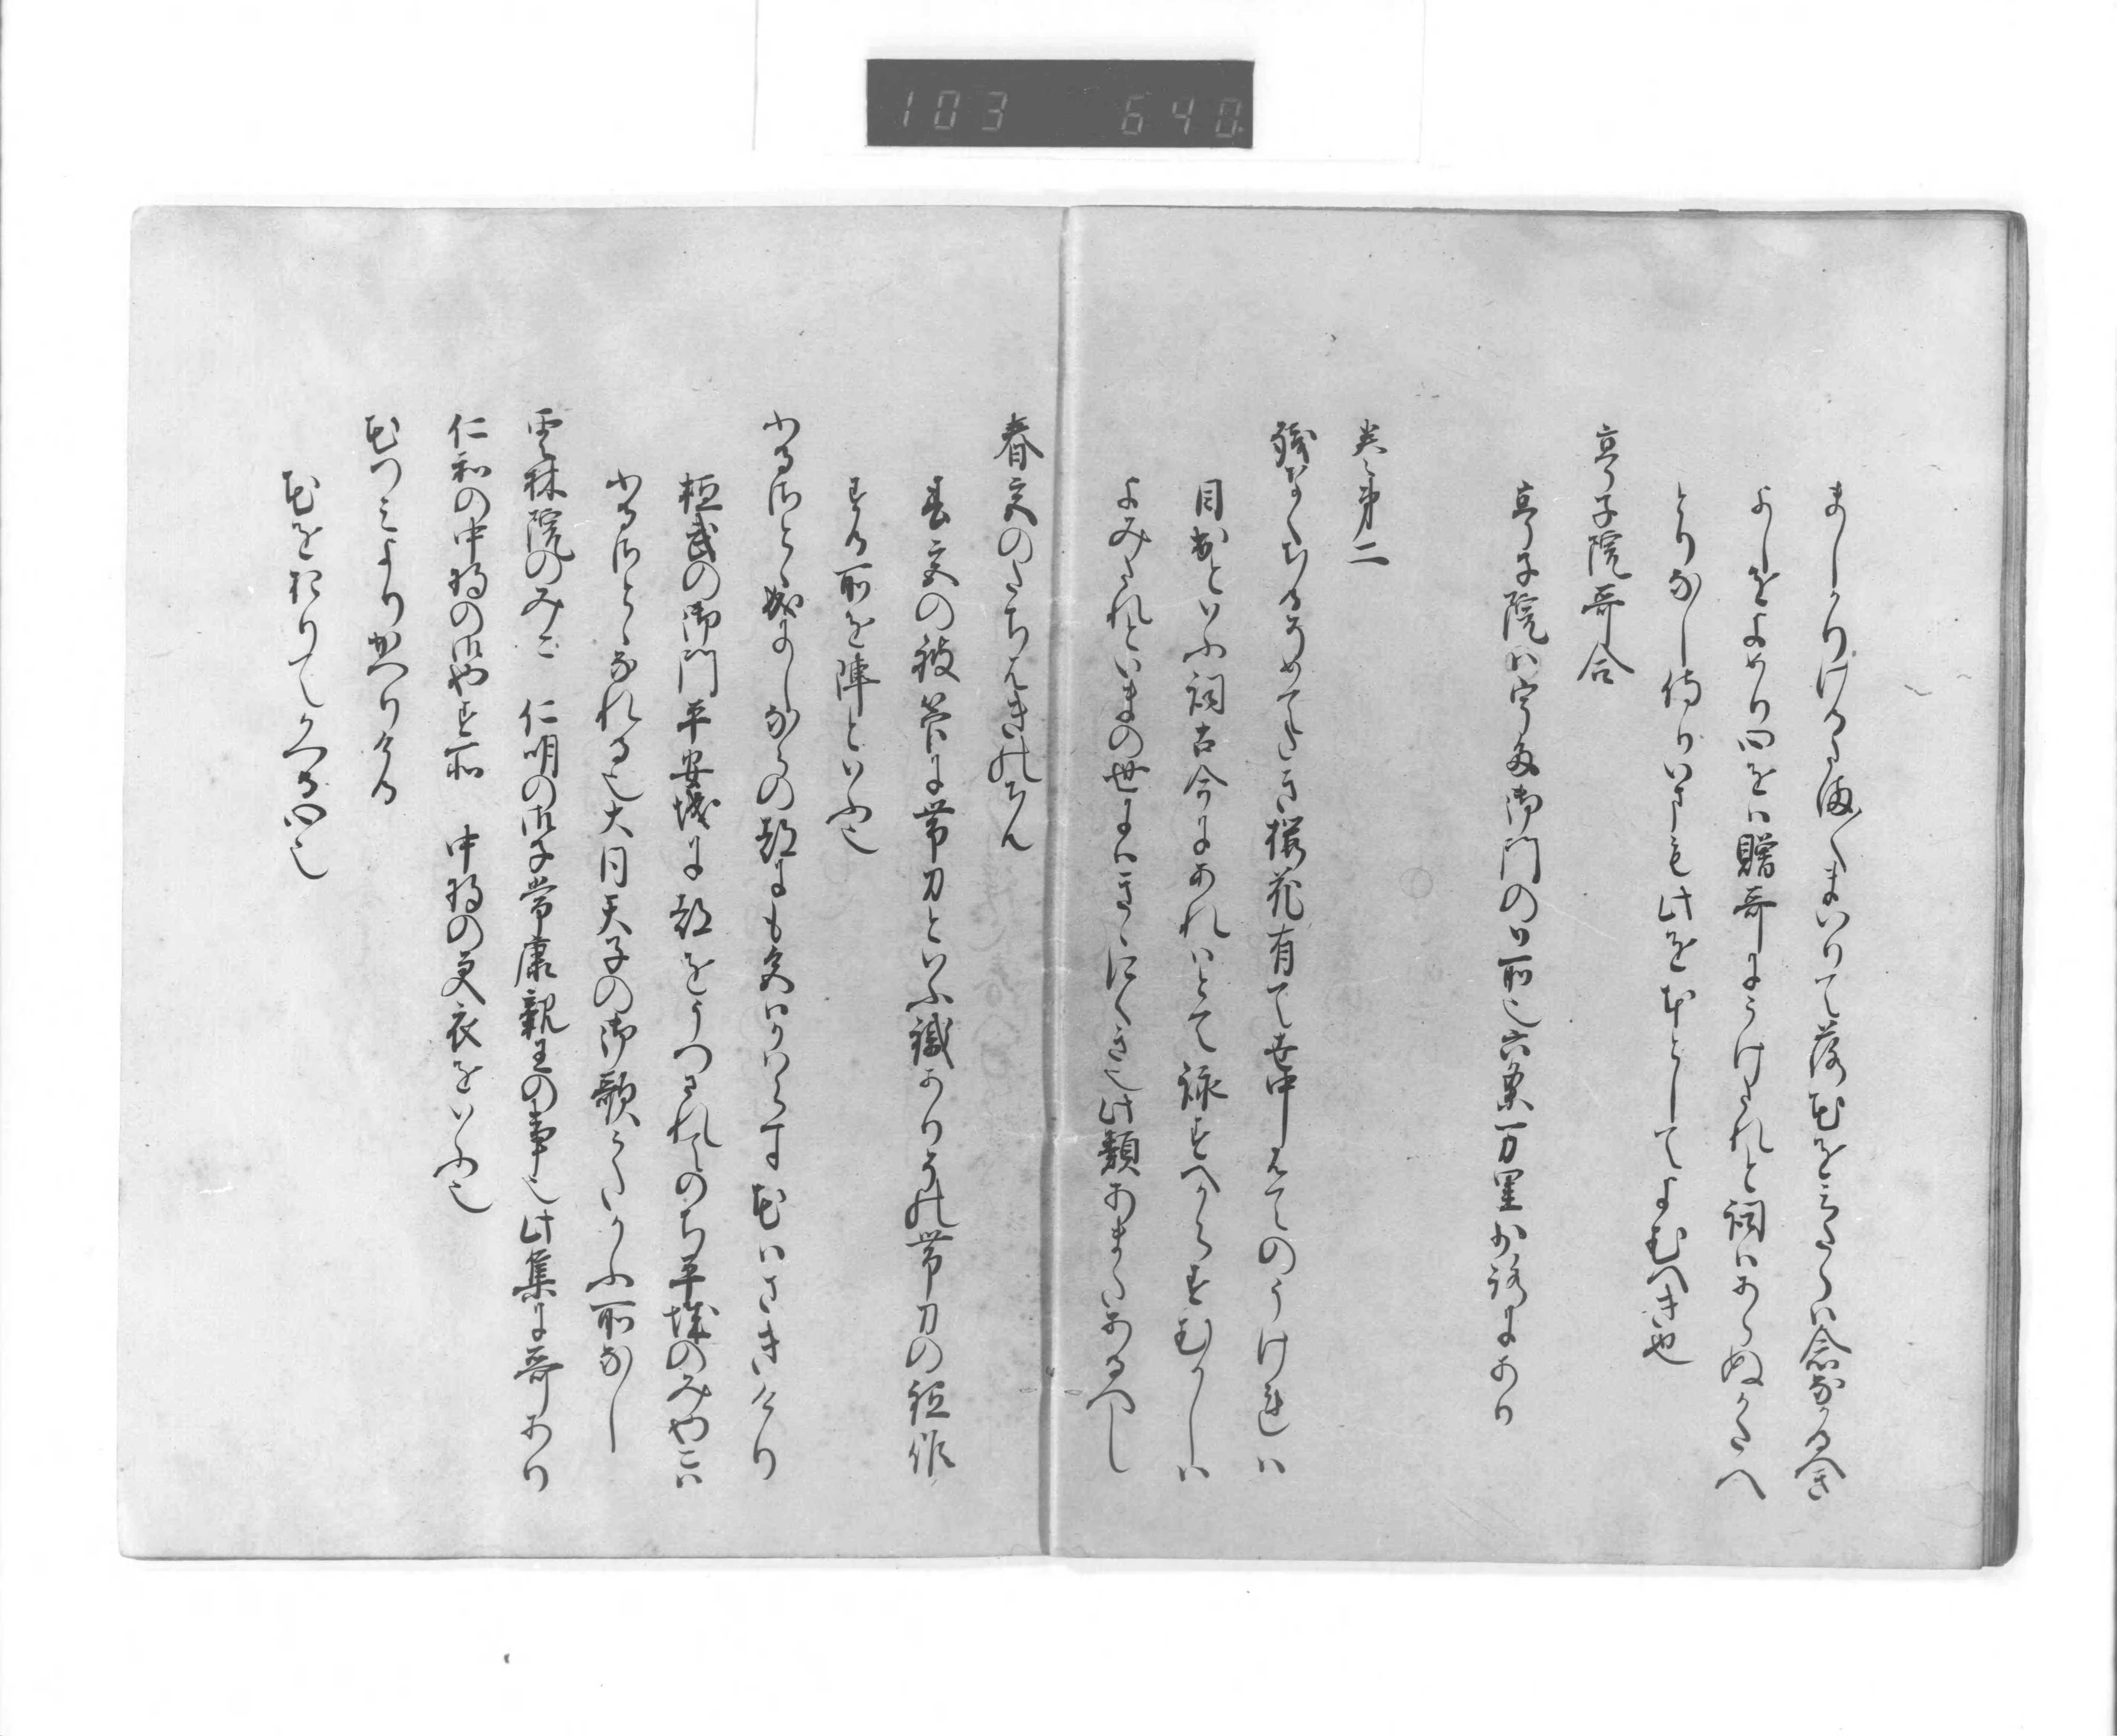 103 640
ましかりけるに痛くまいりて落花をみさらは念なかるへき
よしをよめり仍をは贈哥にうけされと詞にあらぬうへ
とりなし侍りいまも此を本としてよむへき也
亭子院哥合
亭子院は宇多御門の御所也六条万里小路にあり
巻第二
残なくちるそめてたき桜花有て世中はてのうけれは
目出といふ詞古今にあれはとて詠すへからすむかしは
よみされといまの世にはきゝにくき也此類あまたあるへし
春宮のたちはきのちん
春宮の被管に帯刀といふ職ありその帯刀の祗候
する所を陣といふ也
ふるさとゝ成にしならの都にも色はかはらす花はさきけり
桓武の御門平安城に都をうつされてのち平城のみやこは
ふるさとゝなれる也大同天子の御歌うたかふ所なし
雲林院のみこ 仁明の御子常康親王の事也此集に哥あり
仁和の中将のみやす所 中将の更衣をいふ也
花つみよりかへりける
花をおりてかへる心也